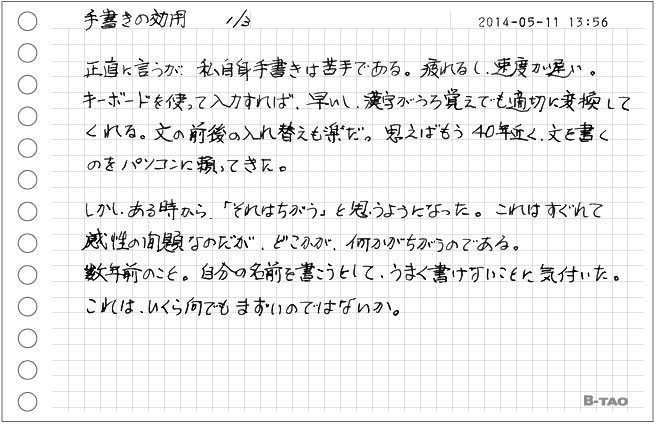 手書きの効用 1/3
2014-05-11 13:56
正直に言うが、私自身手書きは苦手である。疲れるし、速度が遅い。
キーボードを使って入力すれば、早いし、漢字がうろ覚えでも適切に変換して
くれる。文の前後の入れ替えも楽だ。思えばもう40年近く、文を書く
のをパソコンに頼ってきた。
しかし、ある時から、「それはちがう」と思うようになった。これはすぐれて
感性の問題なのだが、どこかが、何かがちがうのである。
数年前のこと。自分の名前を書こうとして、うまく書けないことに気付いた。
これは、いくら何でもまずいのではないか。
B-TAO